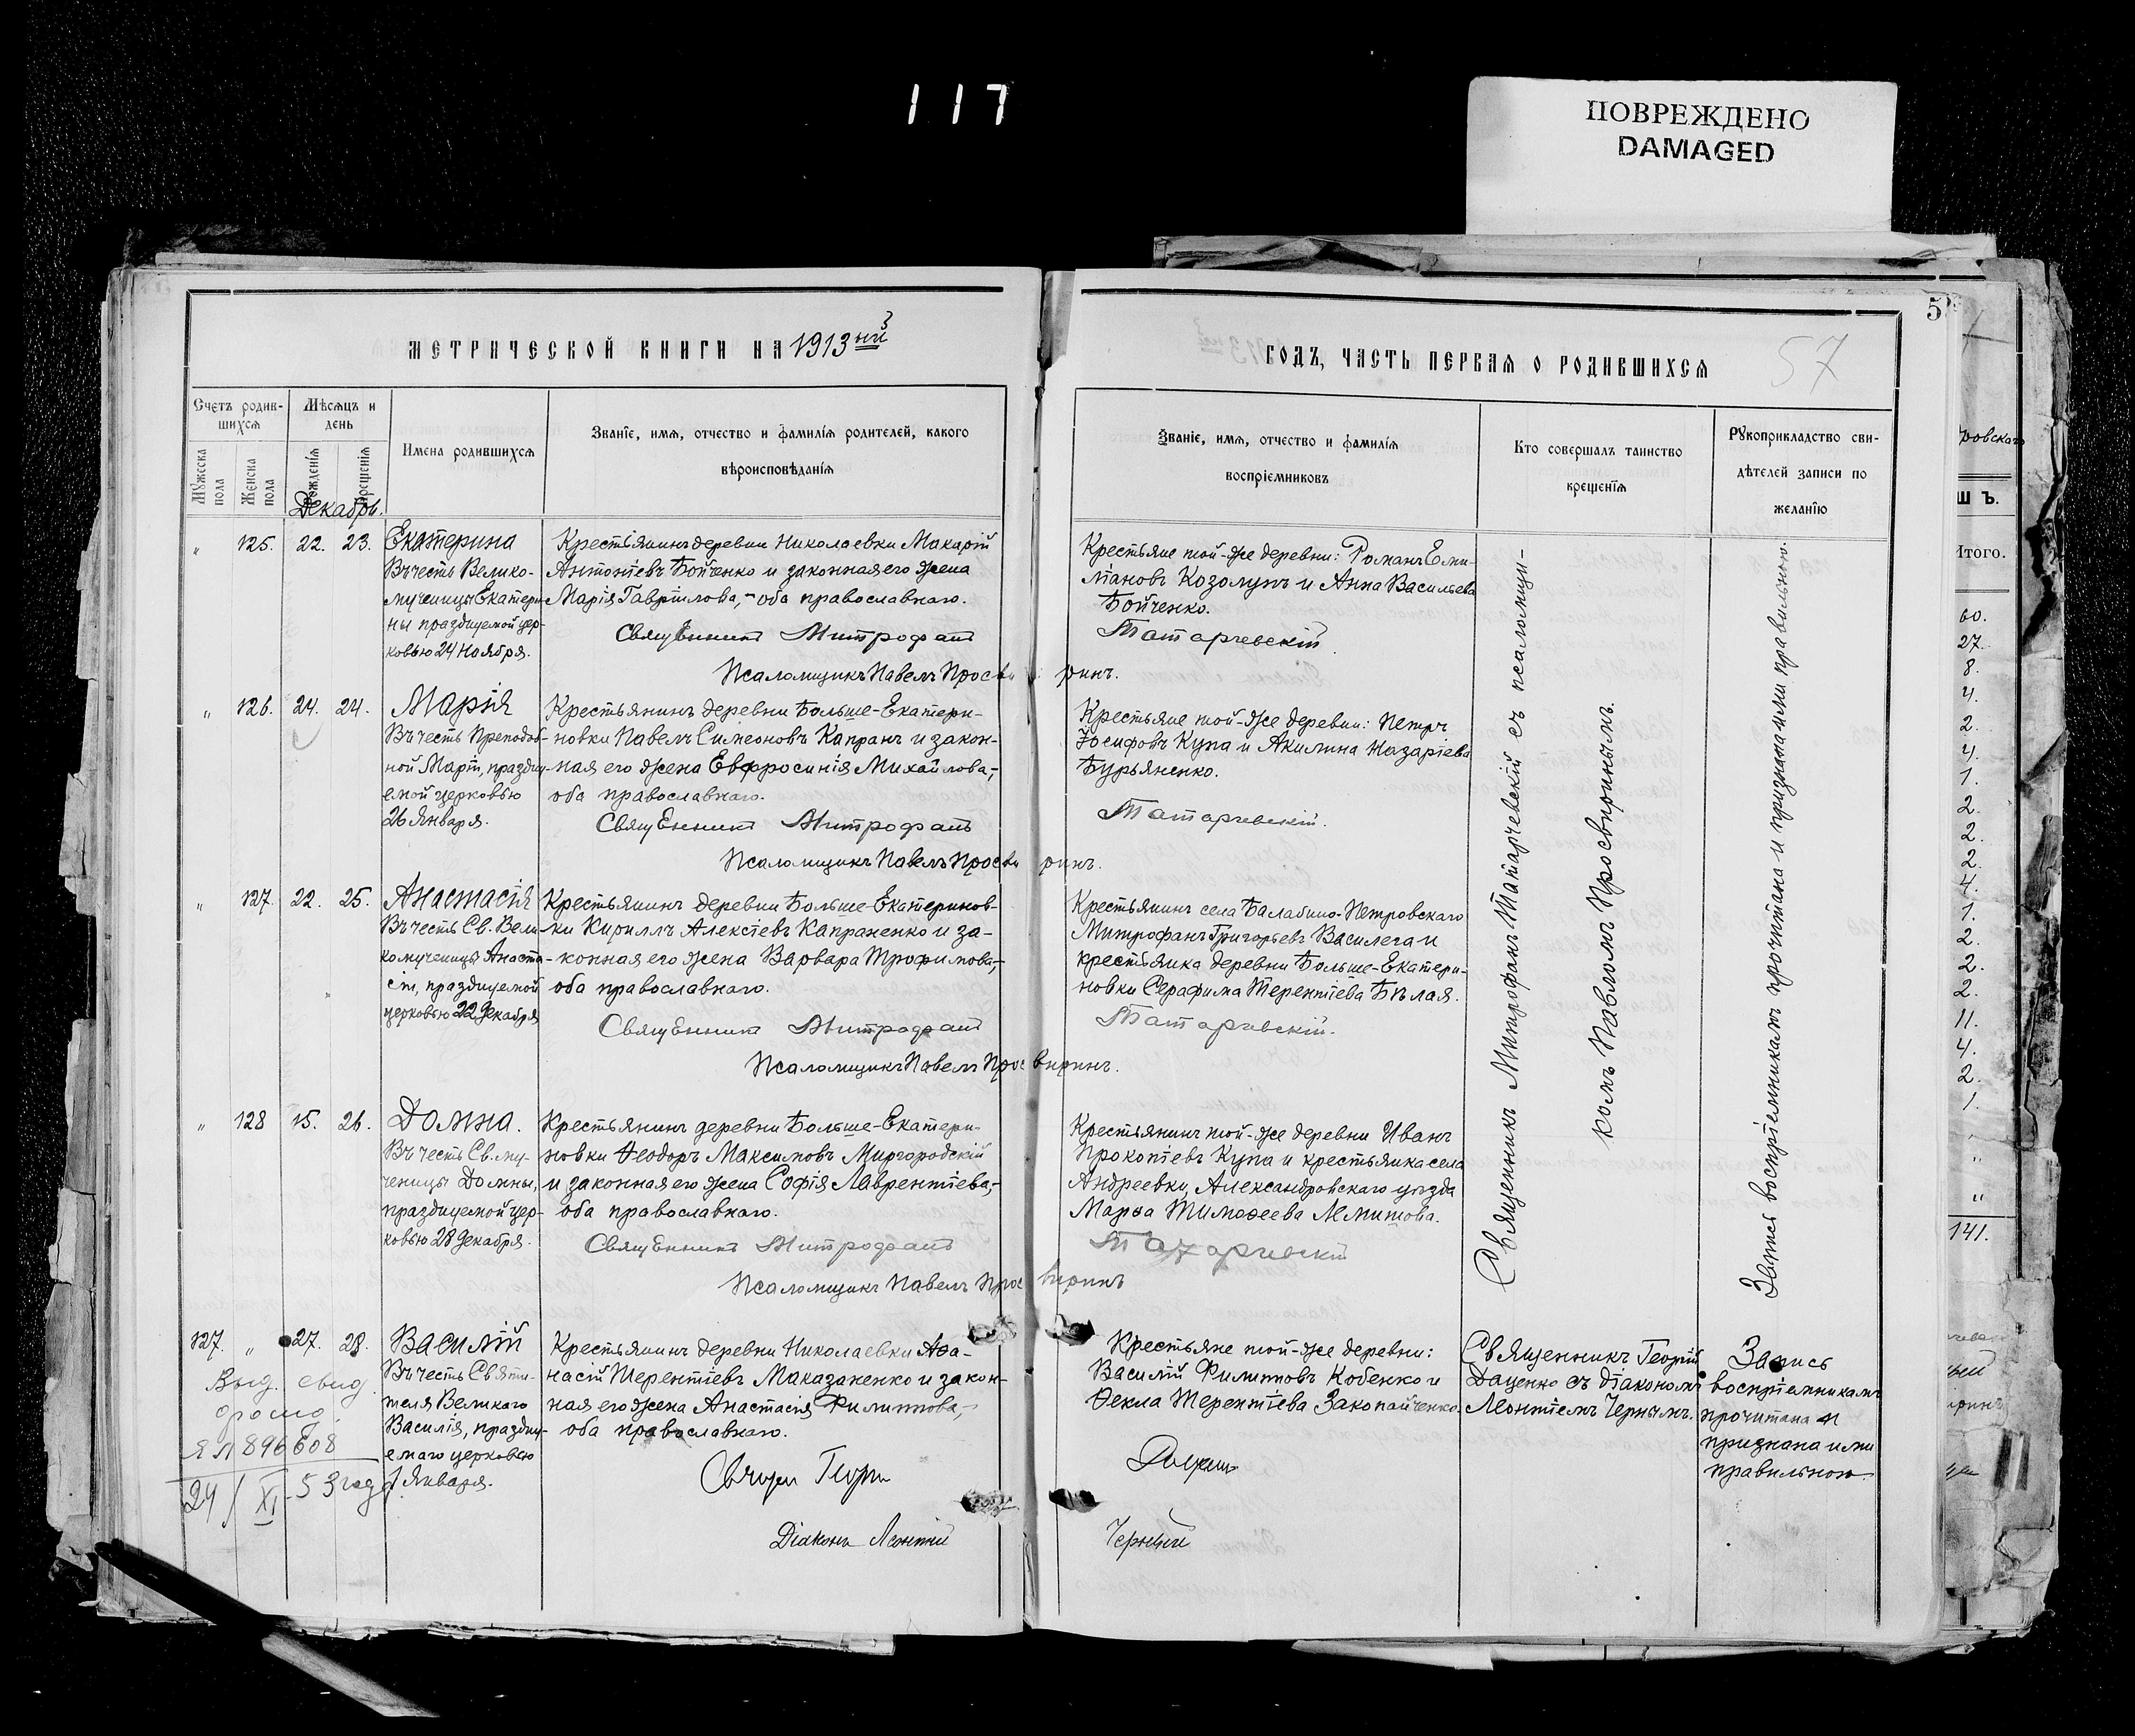 117
ПОВРЕЖДЕНО
DAMAGED
МЕТРИЧЕСКОЙ КНИГИ НА 1913ый
Счетъ родив-
шихся
Мѣсяцъ и
день
Мужеска
пола
Женска
пола
Рожденія
Крещенія
Имена родившихся
Званіе, имя, отчество и фамилія родителей, какого
вѣроисповѣданія
Декабрь.
„ 125. 22. 23.
Екатерина
Въ честь Велико-
мученицы Екатери-
ны празднуемой цер-
ковью 24 Ноября.
Крестьянинъ деревни Николаевки Макарій
Антоніевъ Бойченко и законная его жена
Марія Гавріилова, - оба православнаго.
Священникъ Митрофанъ
Псаломщикъ Павелъ Просви
„ 126. 24. 24.
Марія
Въ честь Преподоб-
ной Маріи, празднy-
емой церковью
26 Января.
Крестьянинъ деревни Больше-Екатери-
новки Павелъ Симеоновъ Капранъ и закон-
ная его жена Евфросинія Михайлова, -
оба православнаго.
Священникъ Митрофанъ
Псаломщикъ Павелъ Просви
„ 127. 22. 25.
Анастасія
Въ честь Св. Вели-
комученицы Анаста-
сіи, празднуемой
церковью 22 декабря
Крестьянинъ деревни Больше-Екатеринов-
ки Кириллъ Алексіевъ Капраненко и за-
конная его жена Варвара Трофимова, -
оба православнаго.
Священникъ Митрофанъ
Псаломщикъ Павелъ Прос
„ 128 15. 26.
Домна.
Въ честь Св. му-
ченицы Домны,
празднуемой цер-
ковью 28 декабря.
Крестьянинъ деревни Больше-Екатери-
новки Ѳеодоръ Максимовъ Миргородскій
и законная его жена Софія Лаврентіева, -
оба православнаго.
Священникъ Митрофанъ
Псаломщикъ Павелъ Прос
127. „ 27. 28.
Василій
Въ честь Святи-
теля Великаго
Василія, праздну-
емаго церковью
1 Января.
Крестьянинъ деревни Николаевки Аѳа-
насій Терентіевъ Маказаненко и закон-
ная его жена Анастасія Филиппова, -
оба православнаго.
Діаконъ Леонтій
Выд. свид.
ЯЛ 896608
24/XI-53 года
ГОДЪ, ЧАСТЬ ПЕРВАЯ О РОДИВШИХСЯ
5
57
Званіе, имя, отчество и фамилія
воспріемниковъ
Кто совершалъ таинство
крещенія
Рукоприкладство сви-
дѣтелей записи по
желанію
Крестьяне той-же деревни: Романъ Еми-
ліановъ Козолупъ и Анна Васильева
Бойченко.
Татарчевскій
ринъ.
Крестьяне той-же деревни: Петръ
Іосифовъ Купа и Акилина Назаріева
Бурьяненко.
Татарчевскій.
ринъ.
Крестьянинъ села Балабино-Петровскаго
Митрофанъ Григорьевъ Василега и
крестьянка деревни Больше-Екатери-
новки Серафима Терентіева Бѣлая.
Татарчевскій.
виринъ.
Крестьянинъ той-же деревни Иванъ
Прокопіевъ Купа и крестьянка села
Андреевки, Александровскаго уѣзда
Марѳа Тимоѳеева
Татарчевскій
виринъ
Священникъ Митрофанъ Татарчевскій съ псаломщи-
комъ Павломъ Просвиринымъ.
Запись воспріемникамъ прочитана и признана ими правильною.
Крестьяне той-же деревни:
Василій Филиповъ Кобенко и
Ѳекла Терентіева Закопайченко.
Даценко
Черный
Священникъ Георгій
Даценко съ діакономъ
Леонтіемъ Чернымъ.
Запись
воспріемникамъ
прочитана и
признана ими
правильною.
ровскаго
Ш Ъ.
Итого.
60.
27.
8.
4.
2.
4.
1.
2.
2.
2.
4.
1.
2.
2.
2.
11.
4.
2.
1.
„
„
141.